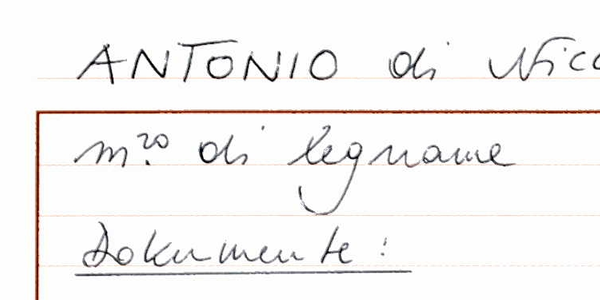 ANTONIO di Nicc
m.ro di legname
Dokumente: